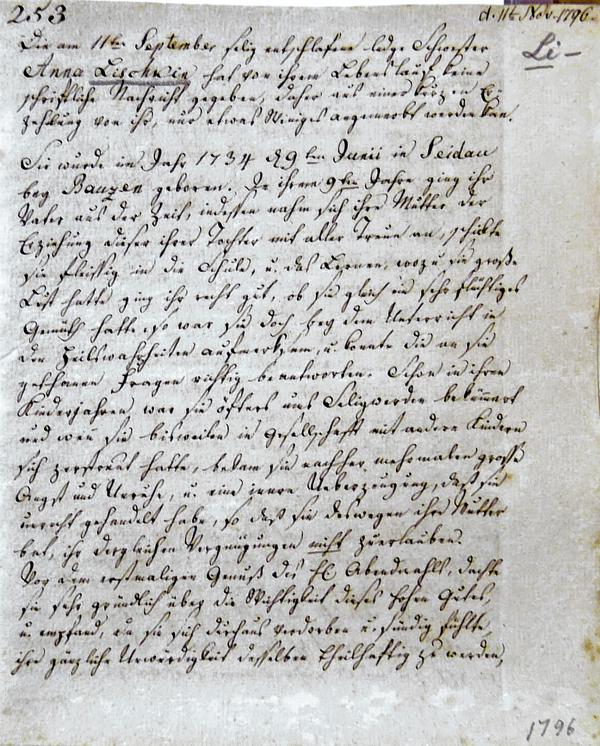 253
d. 11t. Nov. 1796.
Li-
Die am 11ten September selig entschlafene ledge Schwester
Anna Lischkin hat von ihrem Lebenslauf keine
schriftliche Nachricht gegeben, daher aus einer kurzen Er-
zehlung von ihr, nur etwas Weniges angemerkt werden kan.
Sie wurde im Jahr 1734 d 9ten Junii in Seidau
bey Bauzen geboren. In ihrem 9ten Jahre ging ihr
Vater aus der Zeit, indessen nahm sich ihre Mutter der
Erziehung dieser ihrer Tochter mit aller Treue an, schikte
sie fleissig in die Schule, u. das Lernen, wozu sie große
Lust hatte ging ihr recht gut, ob sie gleich ein sehr flüchtiges
Gemüth hatte, so war sie doch bey dem Unterricht in
den Heilswahrheiten aufmerksam, u. konte die an sie
gethanen Fragen richtig beantworten. Schon in ihren
Kinderjahren war sie öfters ums Seligwerden bekümert
und wen sie bisweilen in Gesellschaft mit andern Kindern
sich zerstreut hatte, bekam sie nachher mehrmalen grosse
Angst und Unruhe, u. eine innre Ueberzeugung, daß sie
unrecht gehandelt habe, so daß sie deswegen ihre Mutter
bat, ihr dergleichen Vergnügungen nicht zu erlauben.
Vor dem erstmaligen Genuß des Hl. Abendmahls, dachte
sie sehr gründlich über die Wichtigkeit dieses hohen Gutes,
u. empfand, da sie sich durchaus verdorben u. sündig fühlte,
ihre gänzliche Unwürdigkeit desselben theilhaftig zu werden,
1796